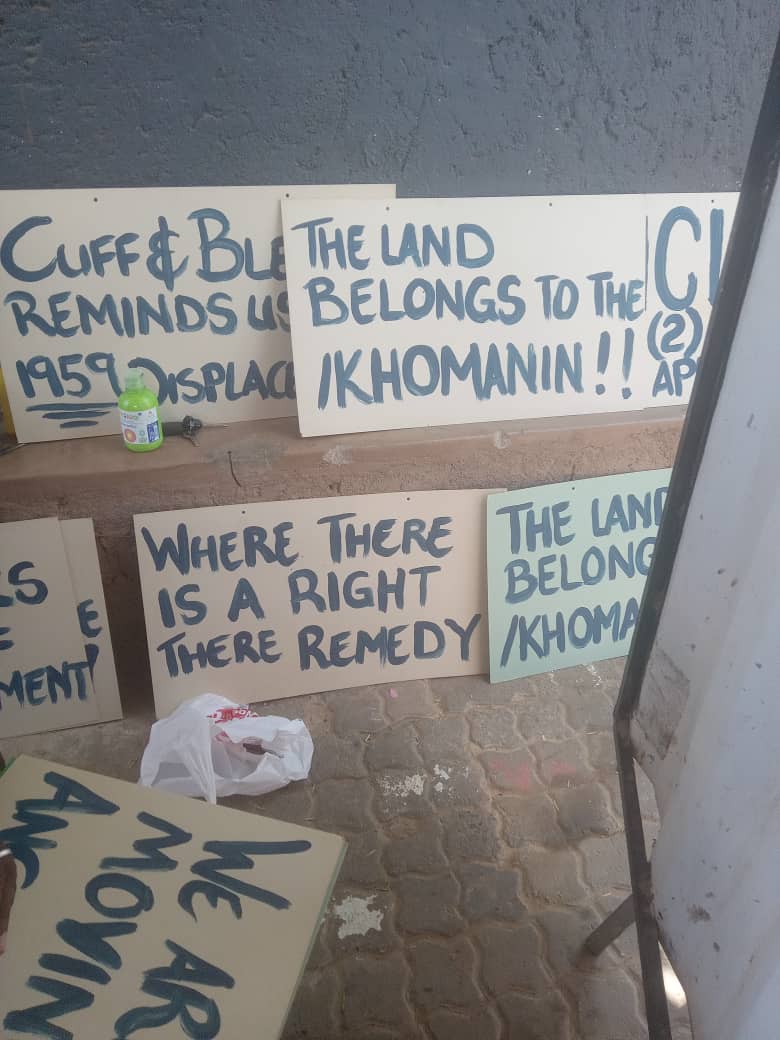 CUFF & BLE
REMINDS US
1959 DISPLAC
THE LAND
BELONGS TO THE
/KHOMANIN!!
(2)
AP
MENT
WHERE THERE
IS A RIGHT
THERE REMEDY
THE LAND
BELONG
/KHOMA
WE AR
MOVIN